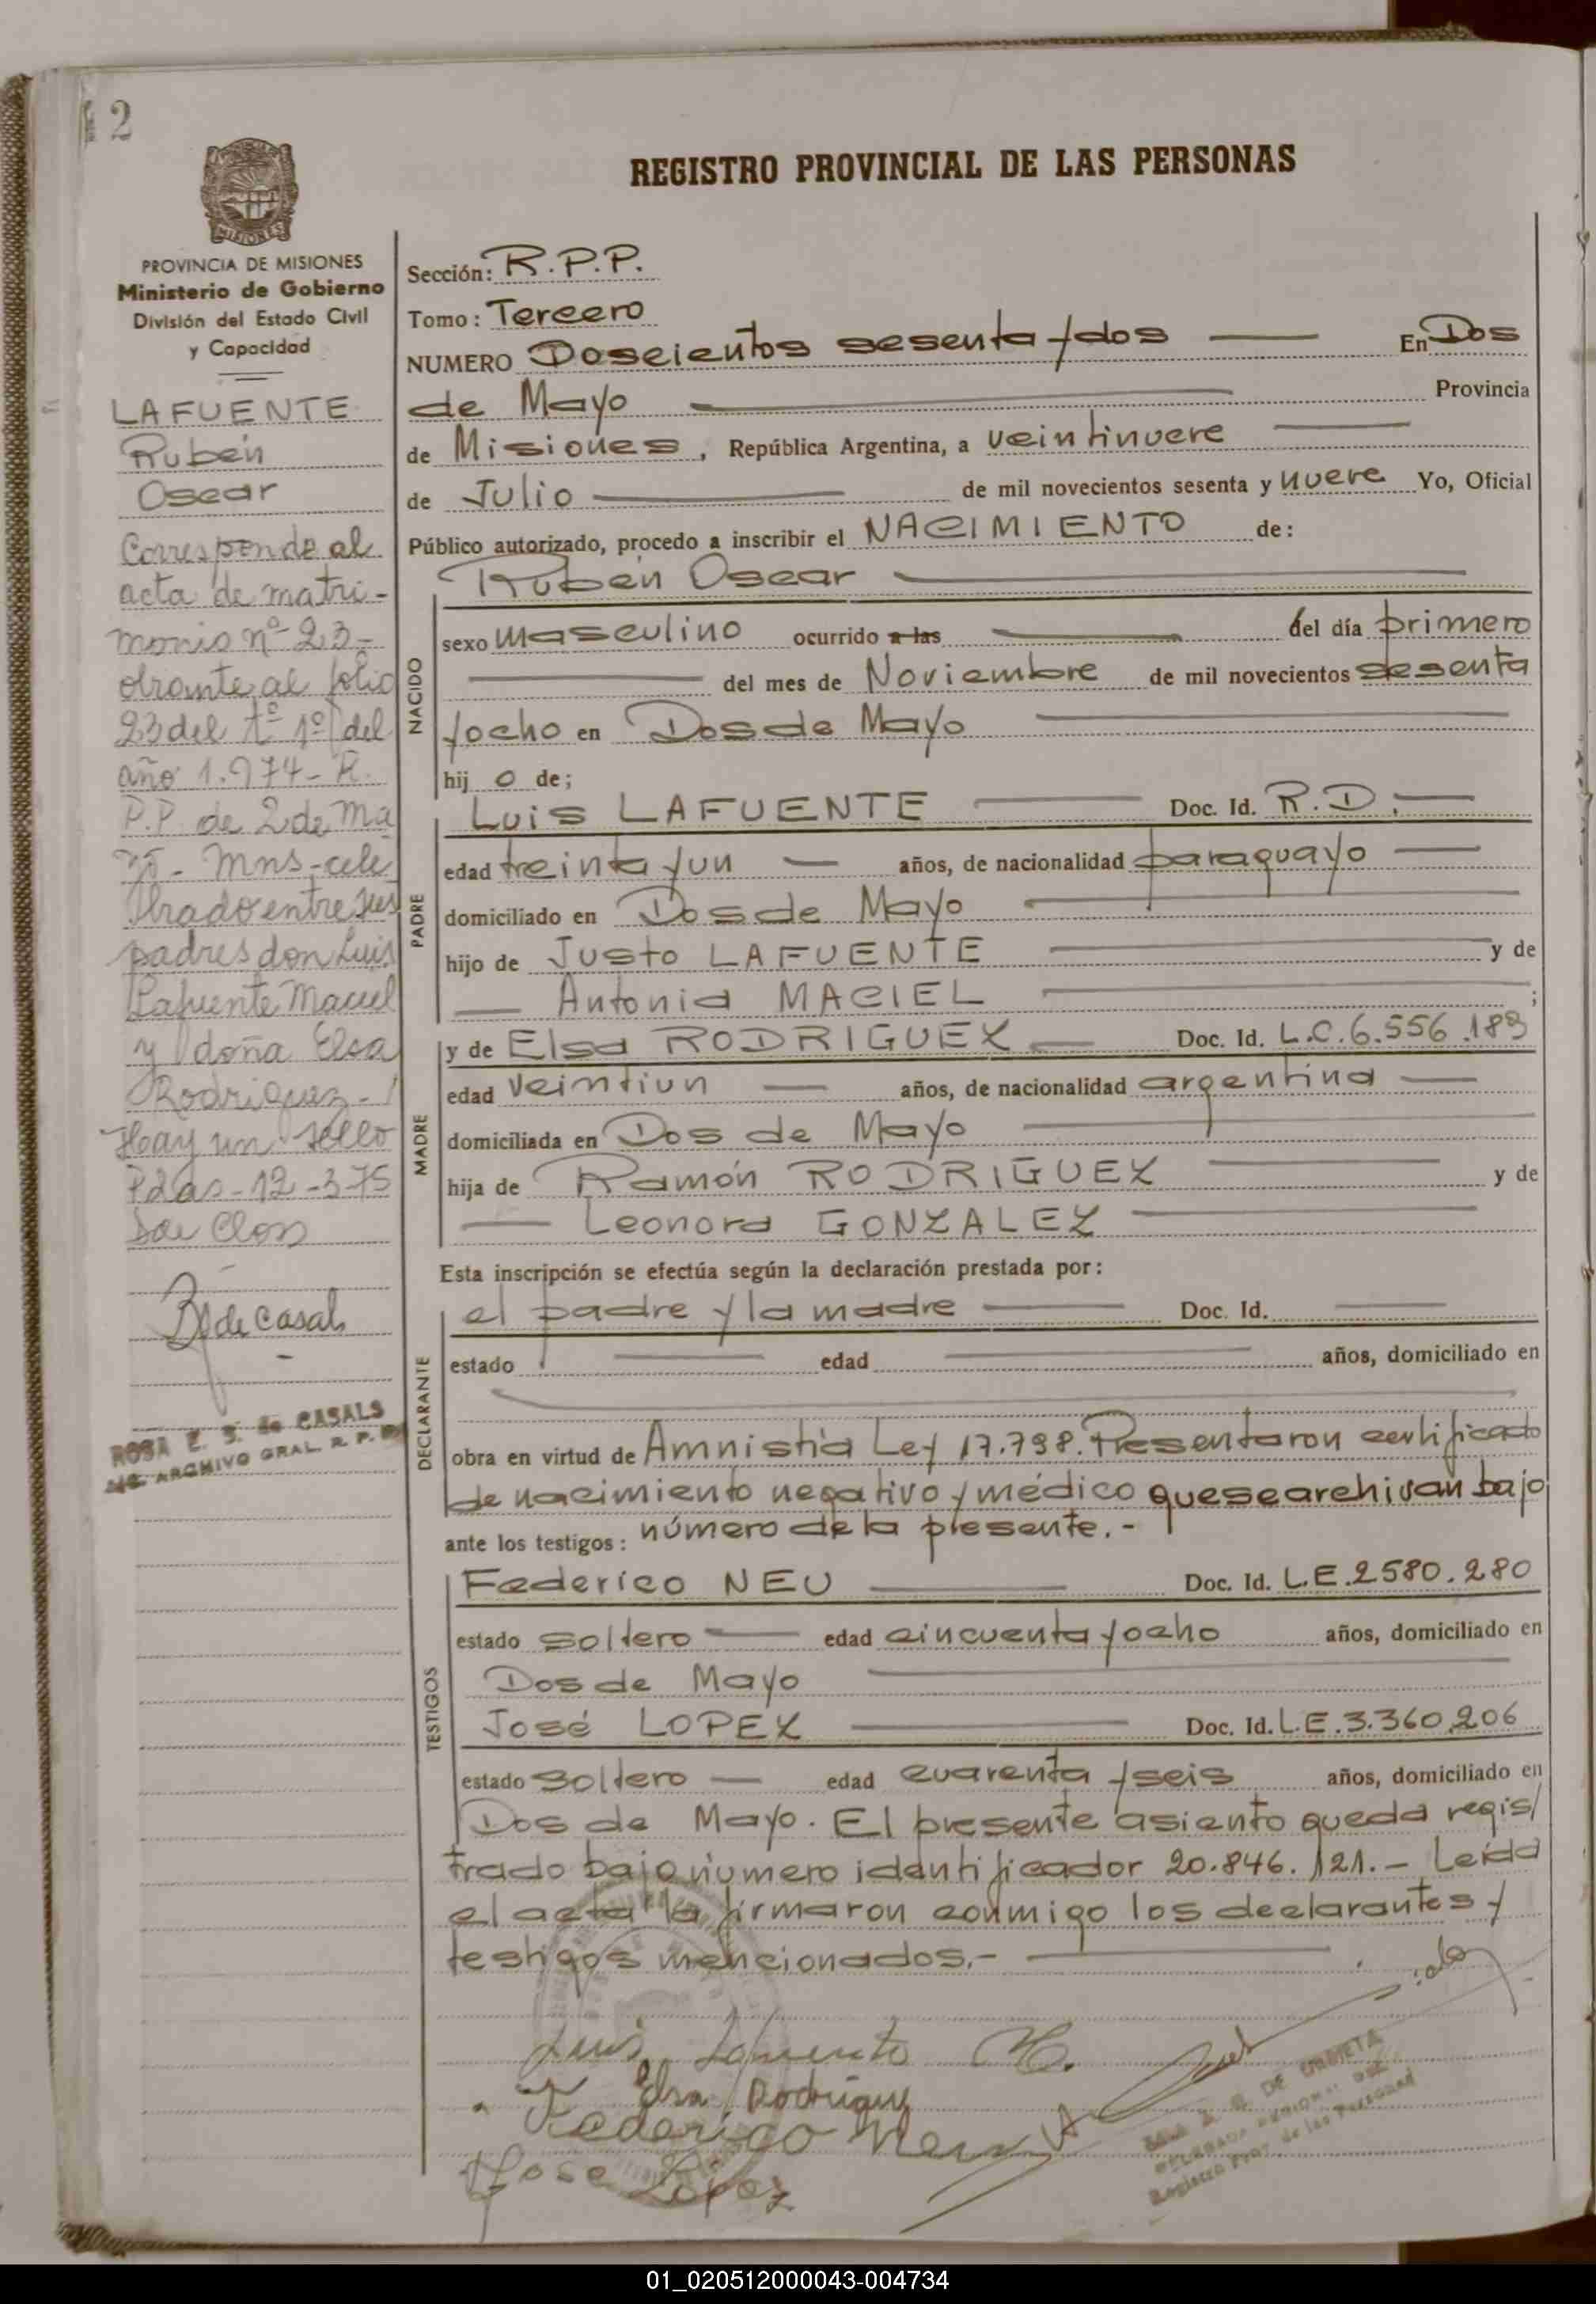 2
REGISTRO PROVINCIAL DE LAS PERSONAS
MISIONES
PROVINCIA DE MISIONES
Ministerio de Gobierno
División del Estado Civil
y Capacidad
LAFUENTE
Rubén
Oscar
Corresponde al
acta de matri-
monio nº 23-
obrante al folio
23 del tº 1º del
año 1.974- R.
P.P. de 2 de Ma
yo - Mns - cele
brado entre sus
padres don Luis
Lafuente Maciel
y doña Elsa
Rodriguez -
Hay un sello
Pdas - 12 - 3-75
ROSA E. S. de CASALS
ARCHIVO GRAL. R. P.
Sección: R.P.P.
Tomo: Tercero
NUMERO Doscientos sesenta y dos En Dos
de Mayo Provincia
de Misiones, República Argentina, a veintinueve
de Julio de mil novecientos sesenta y nueve Yo, Oficial
Público autorizado, procedo a inscribir el NACIMIENTO de:
Rubén Oscar
NACIDO
sexo masculino ocurrido a las del día primero
del mes de Noviembre de mil novecientos sesenta
y ocho en Dos de Mayo
hij o de;
PADRE
Luis LAFUENTE Doc. Id. R.D.
edad treinta y un años, de nacionalidad paraguayo
domiciliado en Dos de Mayo
hijo de Justo LAFUENTE y de
Antonia MACIEL ;
MADRE
y de Elsa RODRIGUEZ Doc. Id. L.C. 6.556.189
edad veintiun años, de nacionalidad argentina
domiciliada en Dos de Mayo
hija de Ramón RODRIGUEZ y de
Leonora GONZALEZ
Esta inscripción se efectúa según la declaración prestada por:
DECLARANTE
el padre y la madre Doc. Id.
estado edad años, domiciliado en
obra en virtud de Amnistía Ley 17.798. Presentaron certificado
de nacimiento negativo y médico que se archivan bajo
ante los testigos: número de la presente.-
TESTIGOS
Federico NEU Doc. Id. L.E. 2580.280
estado soltero edad cincuenta y ocho años, domiciliado en
Dos de Mayo
José LOPEZ Doc. Id. L.E. 3.360.206
estado soltero edad cuarenta y seis años, domiciliado en
Dos de Mayo. El presente asiento queda regis/
trado bajo número identificador 20.846.121.- Leída
el acta la firmaron conmigo los declarantes y
testigos mencionados.-
Luis Lafuente M.
Elsa Rodriguez
Federico Neu
Jose Lopez
DE URRIETA
Registro Prov. de las Personas
01_020512000043-004734